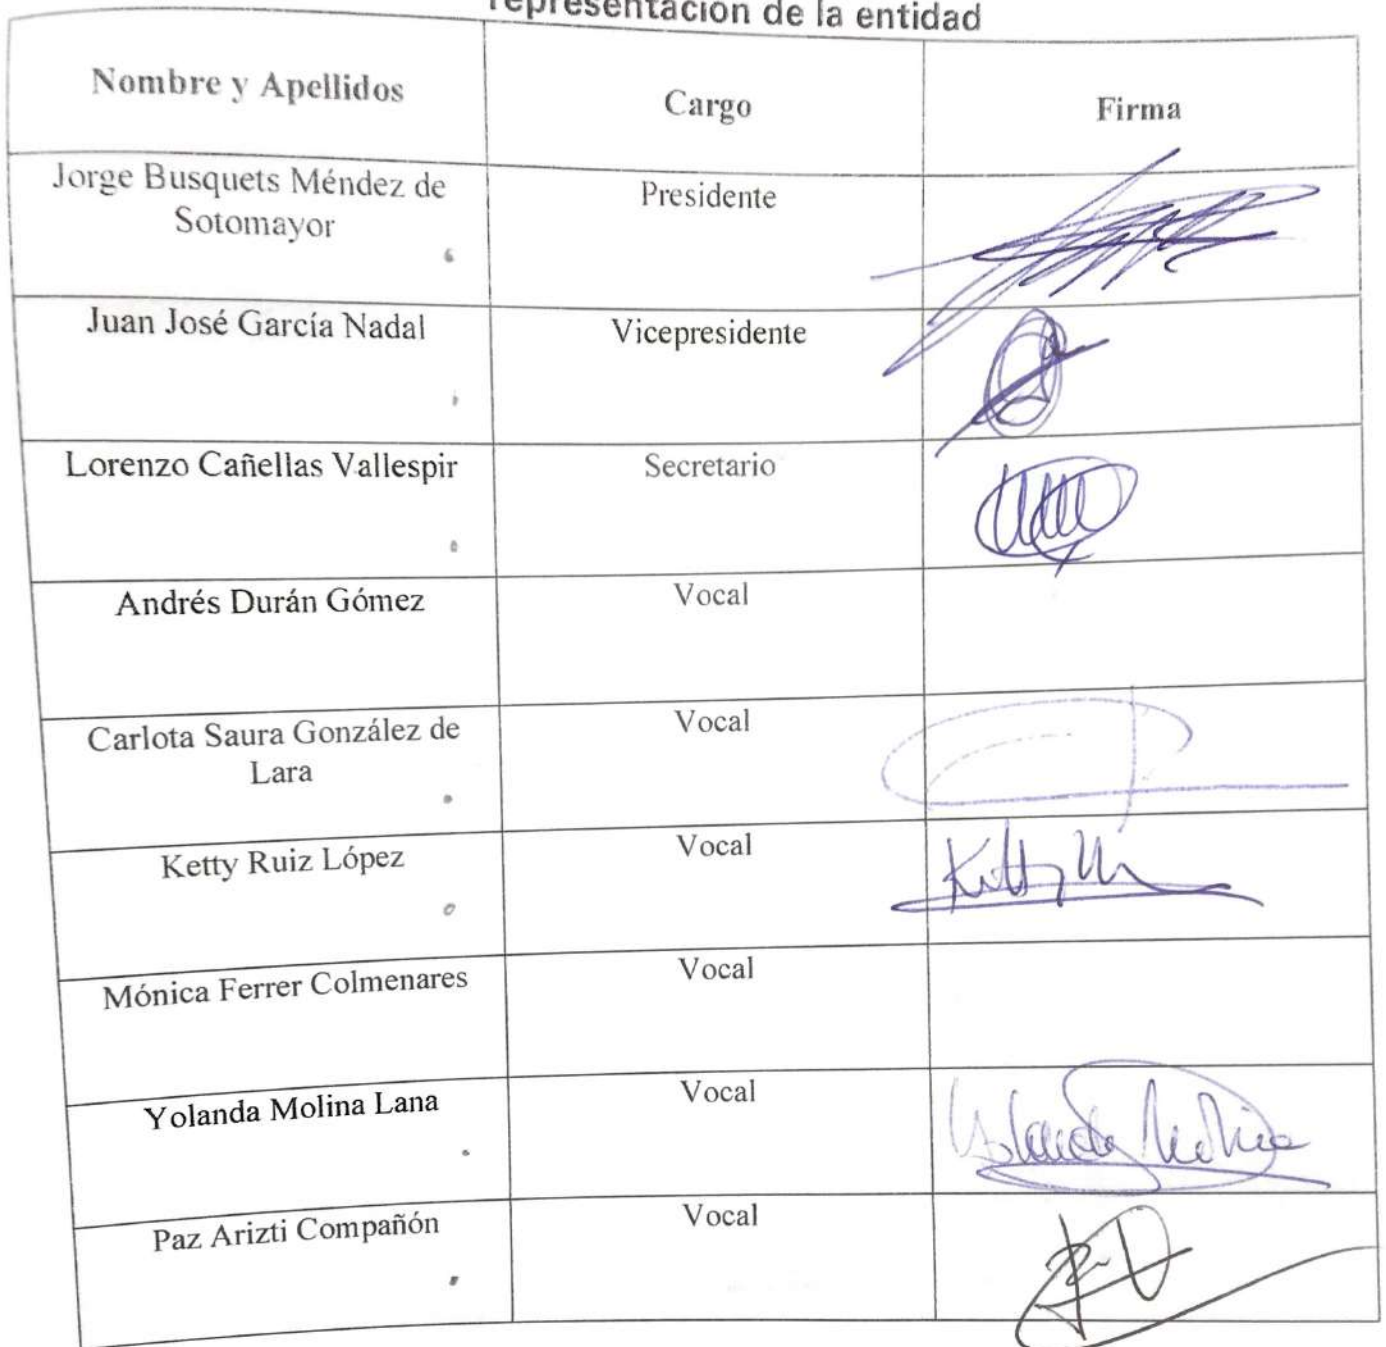 representación de la entidad
Nombre y Apellidos
Cargo
Firma
Jorge Busquets Méndez de
Sotomayor
Presidente
Juan José García Nadal
Vicepresidente
Lorenzo Cañellas Vallespir
Secretario
Andrés Durán Gómez
Vocal
Carlota Saura González de
Lara
Vocal
Ketty Ruiz López
Vocal
Ketty
Mónica Ferrer Colmenares
Vocal
Yolanda Molina Lana
Vocal
Yolanda Molina
Paz Arizti Compañón
Vocal